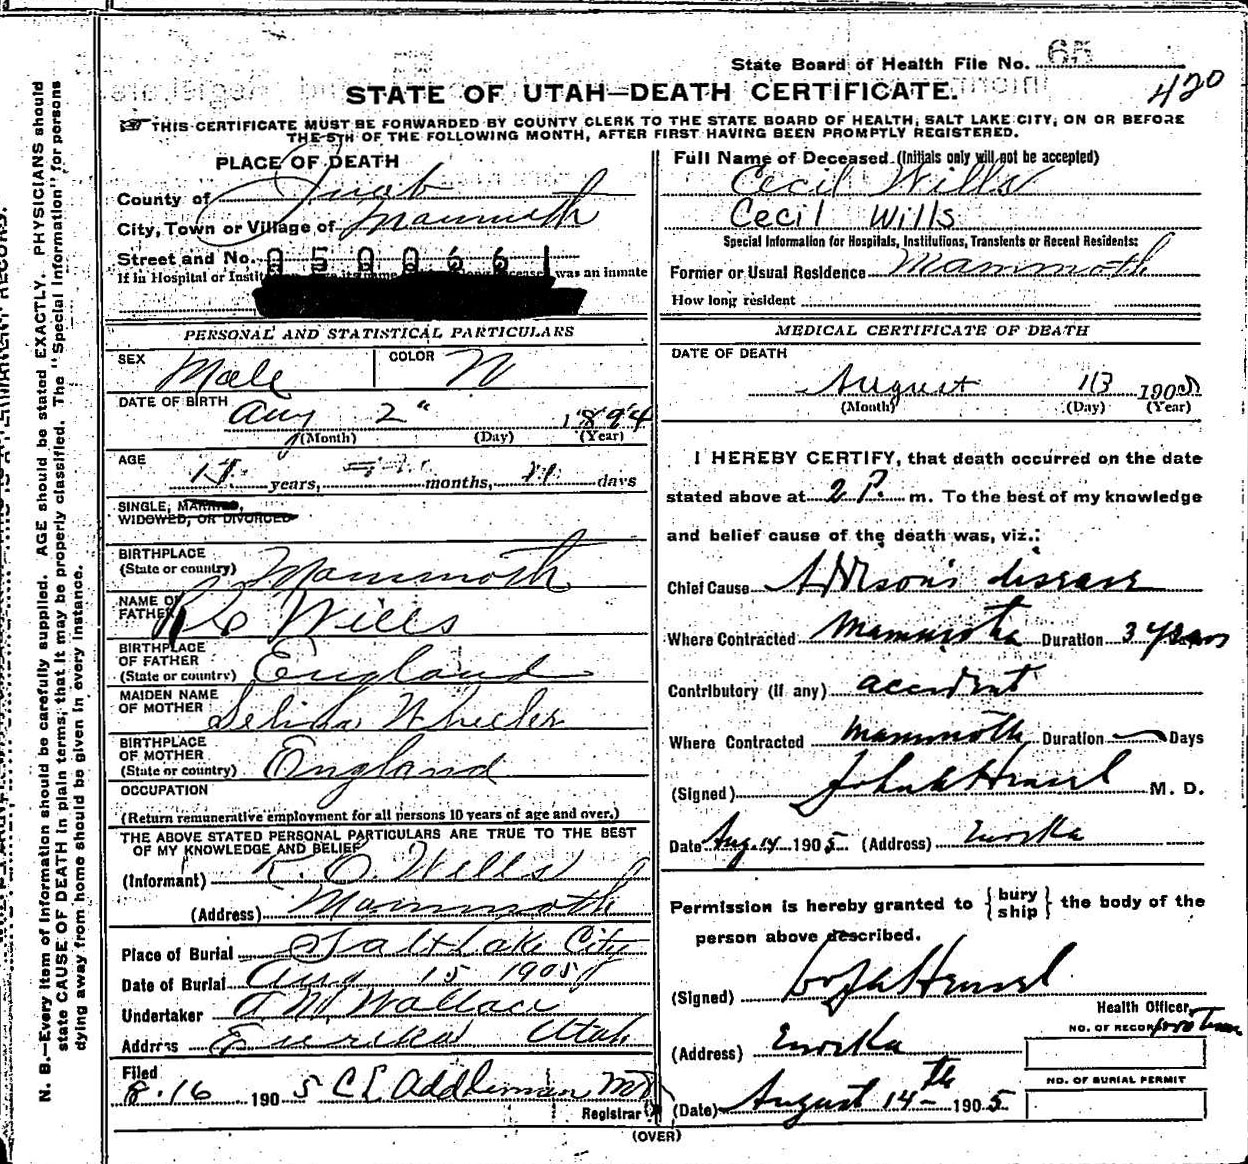 State Board of Health File No. 65
420
STATE OF UTAH—DEATH CERTIFICATE.
THIS CERTIFICATE MUST BE FORWARDED BY COUNTY CLERK TO THE STATE BOARD OF HEALTH, SALT LAKE CITY, ON OR BEFORE
THE 5TH OF THE FOLLOWING MONTH, AFTER FIRST HAVING BEEN PROMPTLY REGISTERED.
PLACE OF DEATH
County of Juab
City, Town or Village of Mammoth
Street and No. 0500661
If in Hospital or Instit was an inmate
PERSONAL AND STATISTICAL PARTICULARS
SEX Male COLOR W
DATE OF BIRTH Aug 2" 1894
(Month) (Day) (Year)
AGE years, months, 11 days
SINGLE, MARRIED,
WIDOWED, OR DIVORCED
BIRTHPLACE
(State or country) Mammoth
NAME OF
FATHER Wills
BIRTHPLACE
OF FATHER
(State or country) England
MAIDEN NAME
OF MOTHER Selina Wheeler
BIRTHPLACE
OF MOTHER
(State or country) England
OCCUPATION
(Return remunerative employment for all persons 10 years of age and over.)
THE ABOVE STATED PERSONAL PARTICULARS ARE TRUE TO THE BEST
OF MY KNOWLEDGE AND BELIEF
(Informant) R. O. Wills
(Address) Mammoth
Place of Burial Salt Lake City
Date of Burial Aug 15 1905
Undertaker Wallace
Address Eureka Utah
Filed
8.16 1905 C E Addleman MD
Registrar
Full Name of Deceased (Initials only will not be accepted)
Cecil Wills
Cecil Wills
Special Information for Hospitals, Institutions, Transients or Recent Residents:
Former or Usual Residence Mammoth
How long resident
MEDICAL CERTIFICATE OF DEATH
DATE OF DEATH
August 13 1905
(Month) (Day) (Year)
I HEREBY CERTIFY, that death occurred on the date
stated above at 2 P. m. To the best of my knowledge
and belief cause of the death was, viz.:
Chief Cause Addison's disease
Where Contracted Mammoth Duration 3 years
Contributory (If any) accident
Where Contracted Mammoth Duration Days
(Signed) M. D.
Date Aug. 14 1905 (Address) Eureka
Permission is hereby granted to {bury ship} the body of the
person above described.
(Signed)
Health Officer
NO. OF RECORD
(Address) Eureka
NO. OF BURIAL PERMIT
(Date) August 14th 1905
(OVER)
N. B.—Every item of information should be carefully supplied. AGE should be stated EXACTLY. PHYSICIANS should
state CAUSE OF DEATH in plain terms, that it may be properly classified. The "Special Information" for persons
dying away from home should be given in every instance.